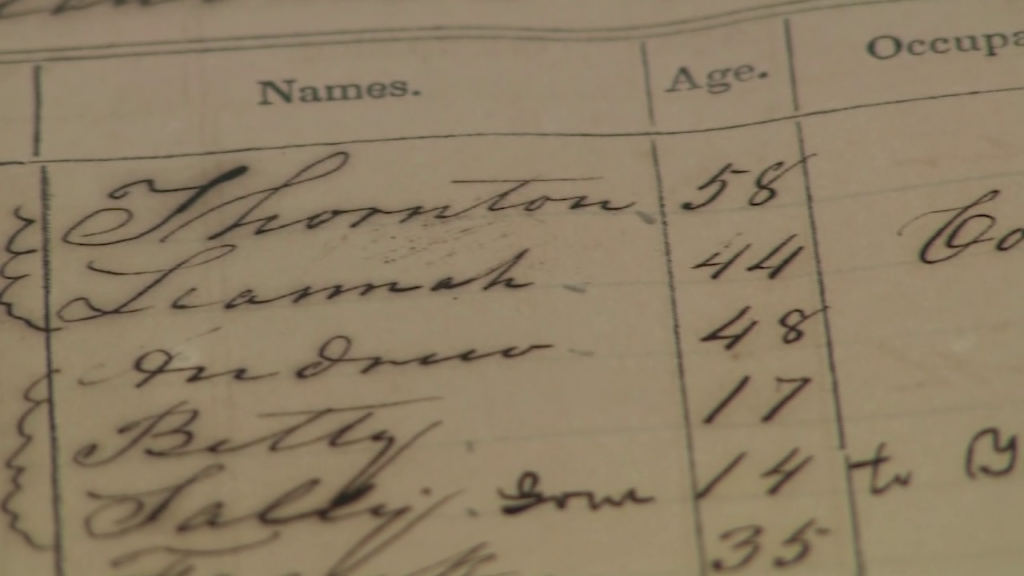 Names. Age.
Thornton 58
Leannah 44
Andrew 48
Betty 17
Sally. 14 to
35